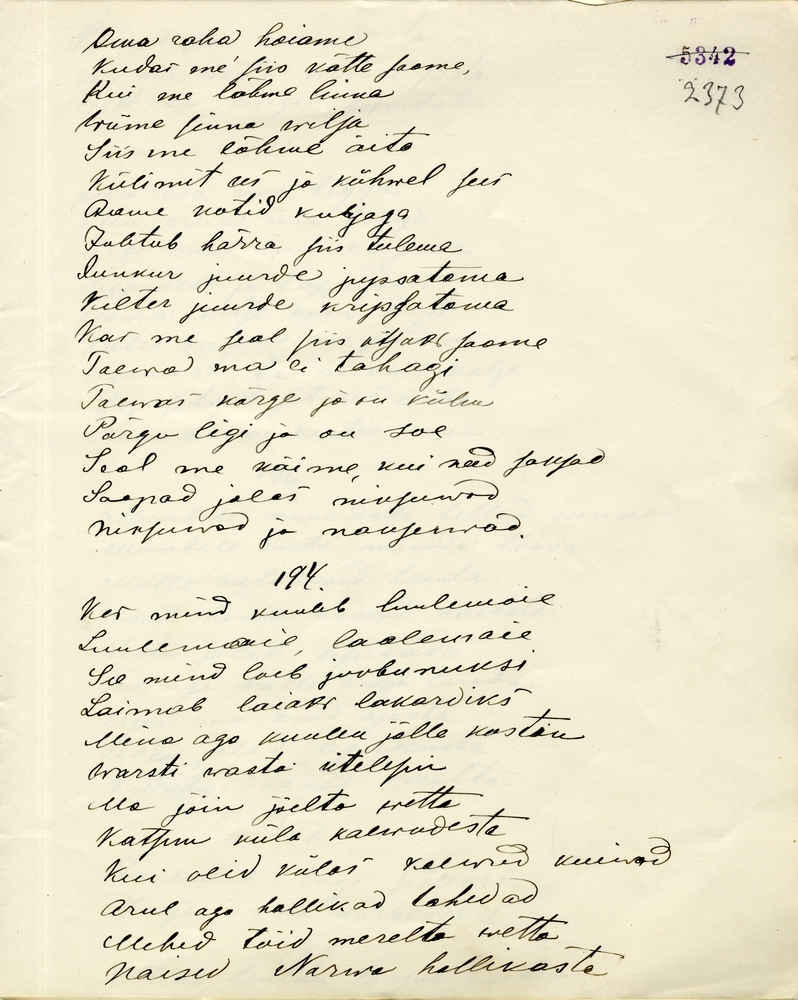 5342
2373
Oma raha hoiame
Kudas me siis kätte saame,
Kui me lähme linna
Wiime sinna wilja
Siis me lähme aita
Külimit ees ja kühwel sees
Aame kotid kubjaga
Juhtub härra siis tulema
Junkur juurde
Kilter juurde
Kas me seal siis otsaks saame
Taewa ma ei tahagi
Taewas kõrge ja on külm
Põrgu ligi ja on soe
Seal me käime, kui need saksad
Saapad jalas niksuwad
Niksuwad ja naksuwad.
194.
Kes mind kuuleb luulemaie
Luulemaie, laulemaie
See mind loeb joobunuksi
Laimab laiaks lakardiks
Mina aga kuulen jälle kostan
Warsti wasta ütelesin
Ma jõin jõelta wetta
Katsun küla kaewudesta
Kui olid külas kaewud kuiwad
Arul aga hallikad tahedad
Mehed tõid merelta wetta
Naised Narwa hallikasta